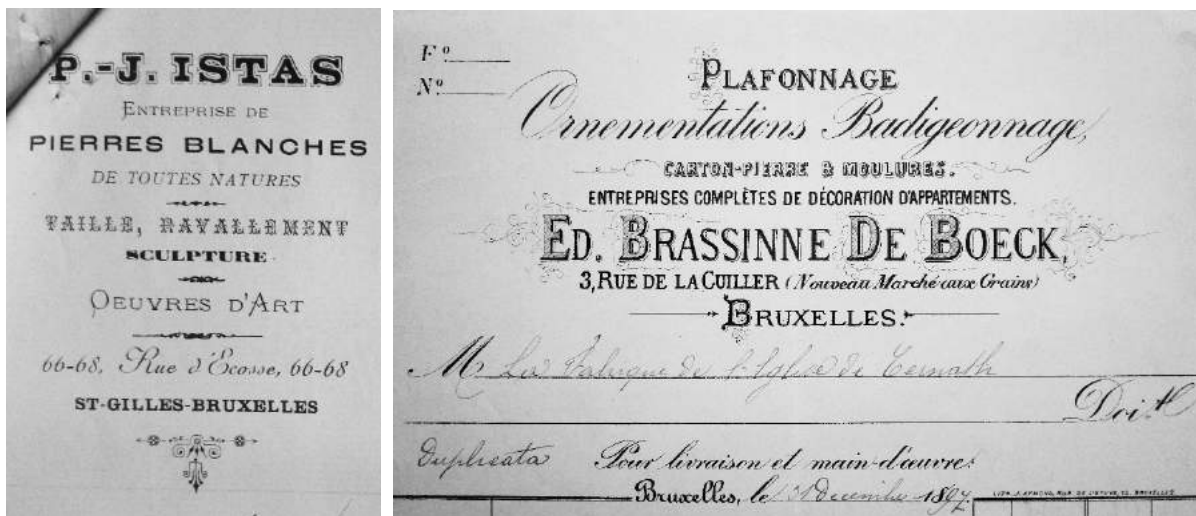 P.-J. ISTAS
ENTREPRISE DE
PIERRES BLANCHES
DE TOUTES NATURES
TAILLE, RAVALLEMENT
SCULPTURE
OEUVRES D'ART
66-68, Rue d'Ecosse, 66-68
ST-GILLES-BRUXELLES
Fº
Nº
PLAFONNAGE
Ornementations Badigeonnage,
CARTON-PIERRE & MOULURES.
ENTREPRISES COMPLÈTES DE DÉCORATION D'APPARTEMENTS.
ED. BRASSINNE DE BOECK,
3, RUE DE LA CUILLER (Nouveau Marché aux Grains)
BRUXELLES.
M La Fabrique de l'Eglise de Ternath
Doit
Duplicata Pour livraison et main-d'œuvre:
Bruxelles, le 31 Decembre 1897.